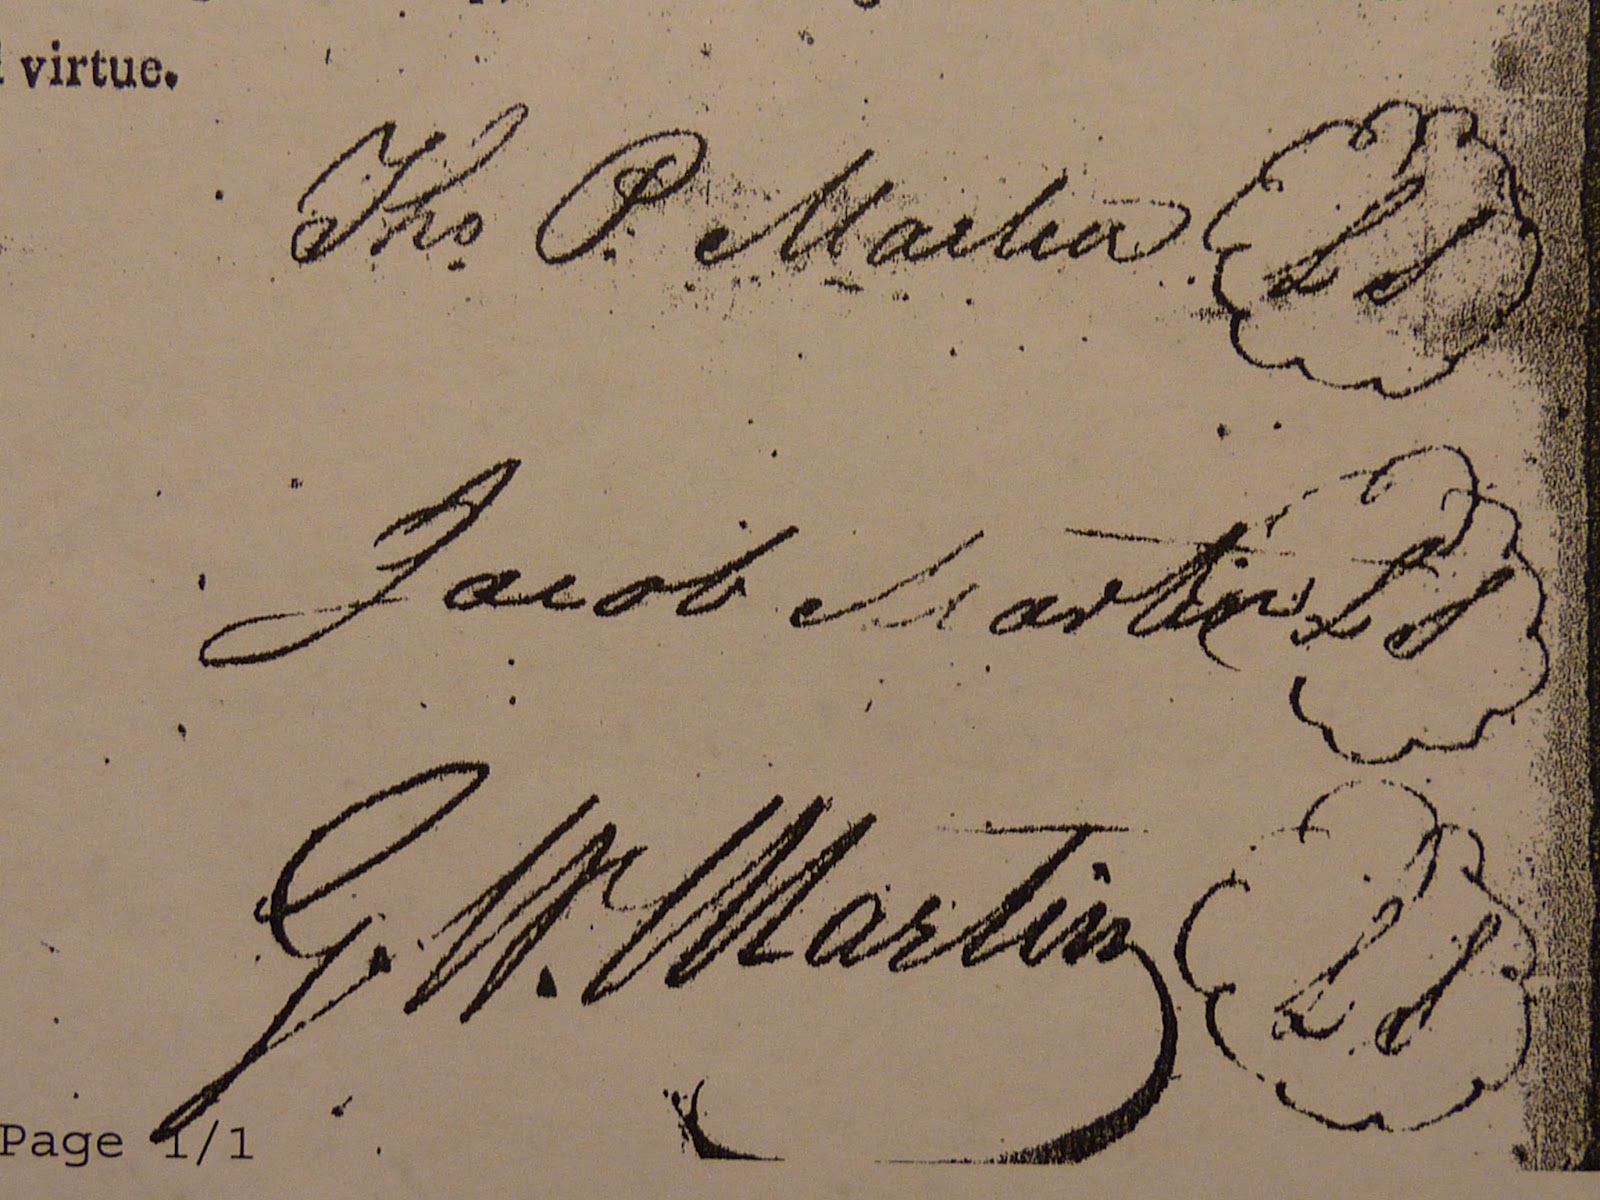 virtue.
Thos P. Martin L S
Jacob Martin L S
G. W. Martin L S
Page 1/1